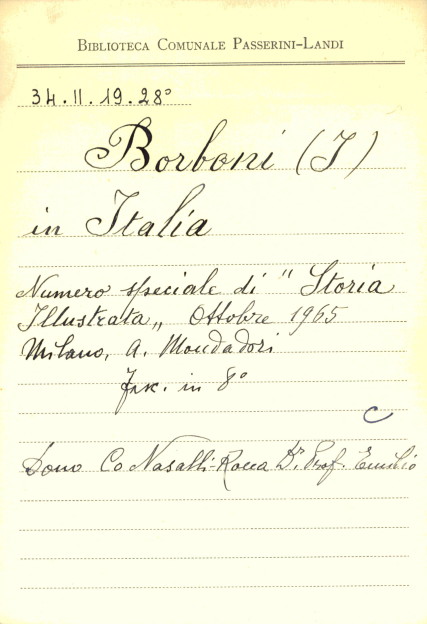 BIBLIOTECA COMUNALE PASSERINI-LANDI
34.II.19.28°
Borboni (I)
in Italia
Numero speciale di "Storia
Illustrata„ Ottobre 1965
Milano, A. Mondadori
Fsk. in 8°
C
Dono Co Nasalli-Rocca Dr. Prof. Emilio